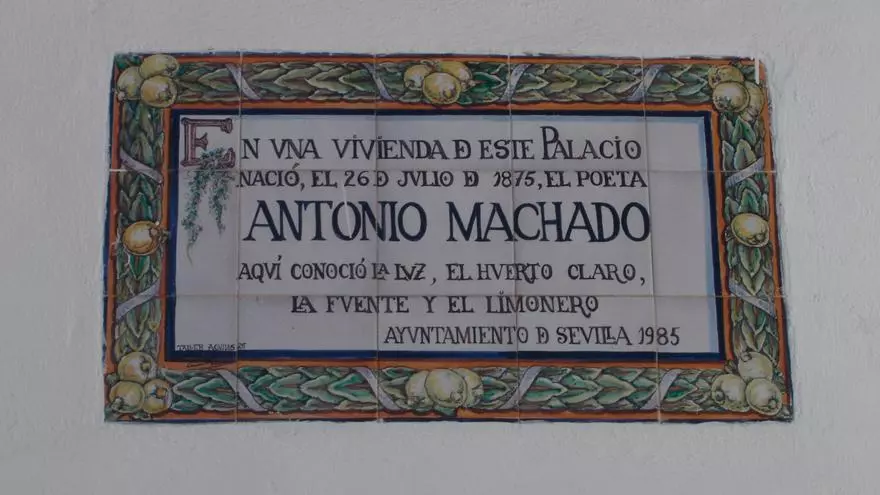 EN VNA VIVIENDA D ESTE PALACIO
NACIÓ, EL 26 D JVLIO D 1875, EL POETA
ANTONIO MACHADO
AQVÍ CONOCIÓ LA LVZ, EL HVERTO CLARO,
LA FVENTE Y EL LIMONERO
AYVNTAMIENTO D SEVILLA 1985
TALLER